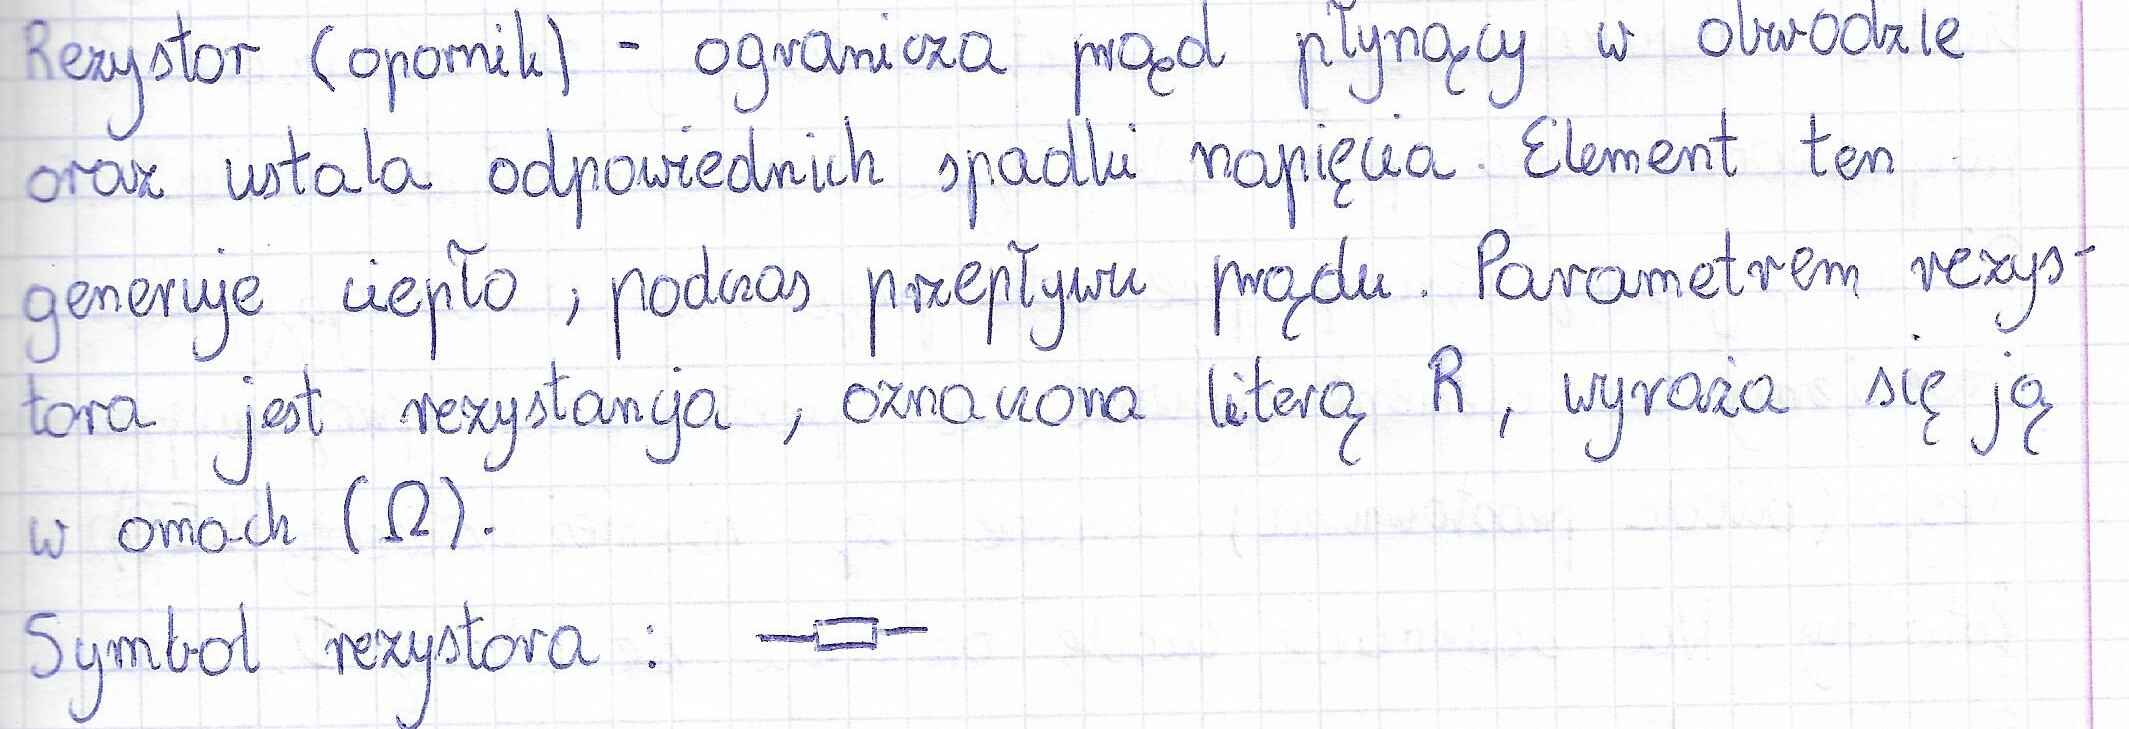 Rezystor (opornik) - ogranicza prąd płynący w obwodzie
oraz ustala odpowiednich spadki napięcia. Element ten
generuje ciepło, podczas przepływu prądu. Parametrem rezys-
tora jest rezystancja, oznaczona literą R, wyraża się ją
w omach (Ω).
Symbol rezystora :